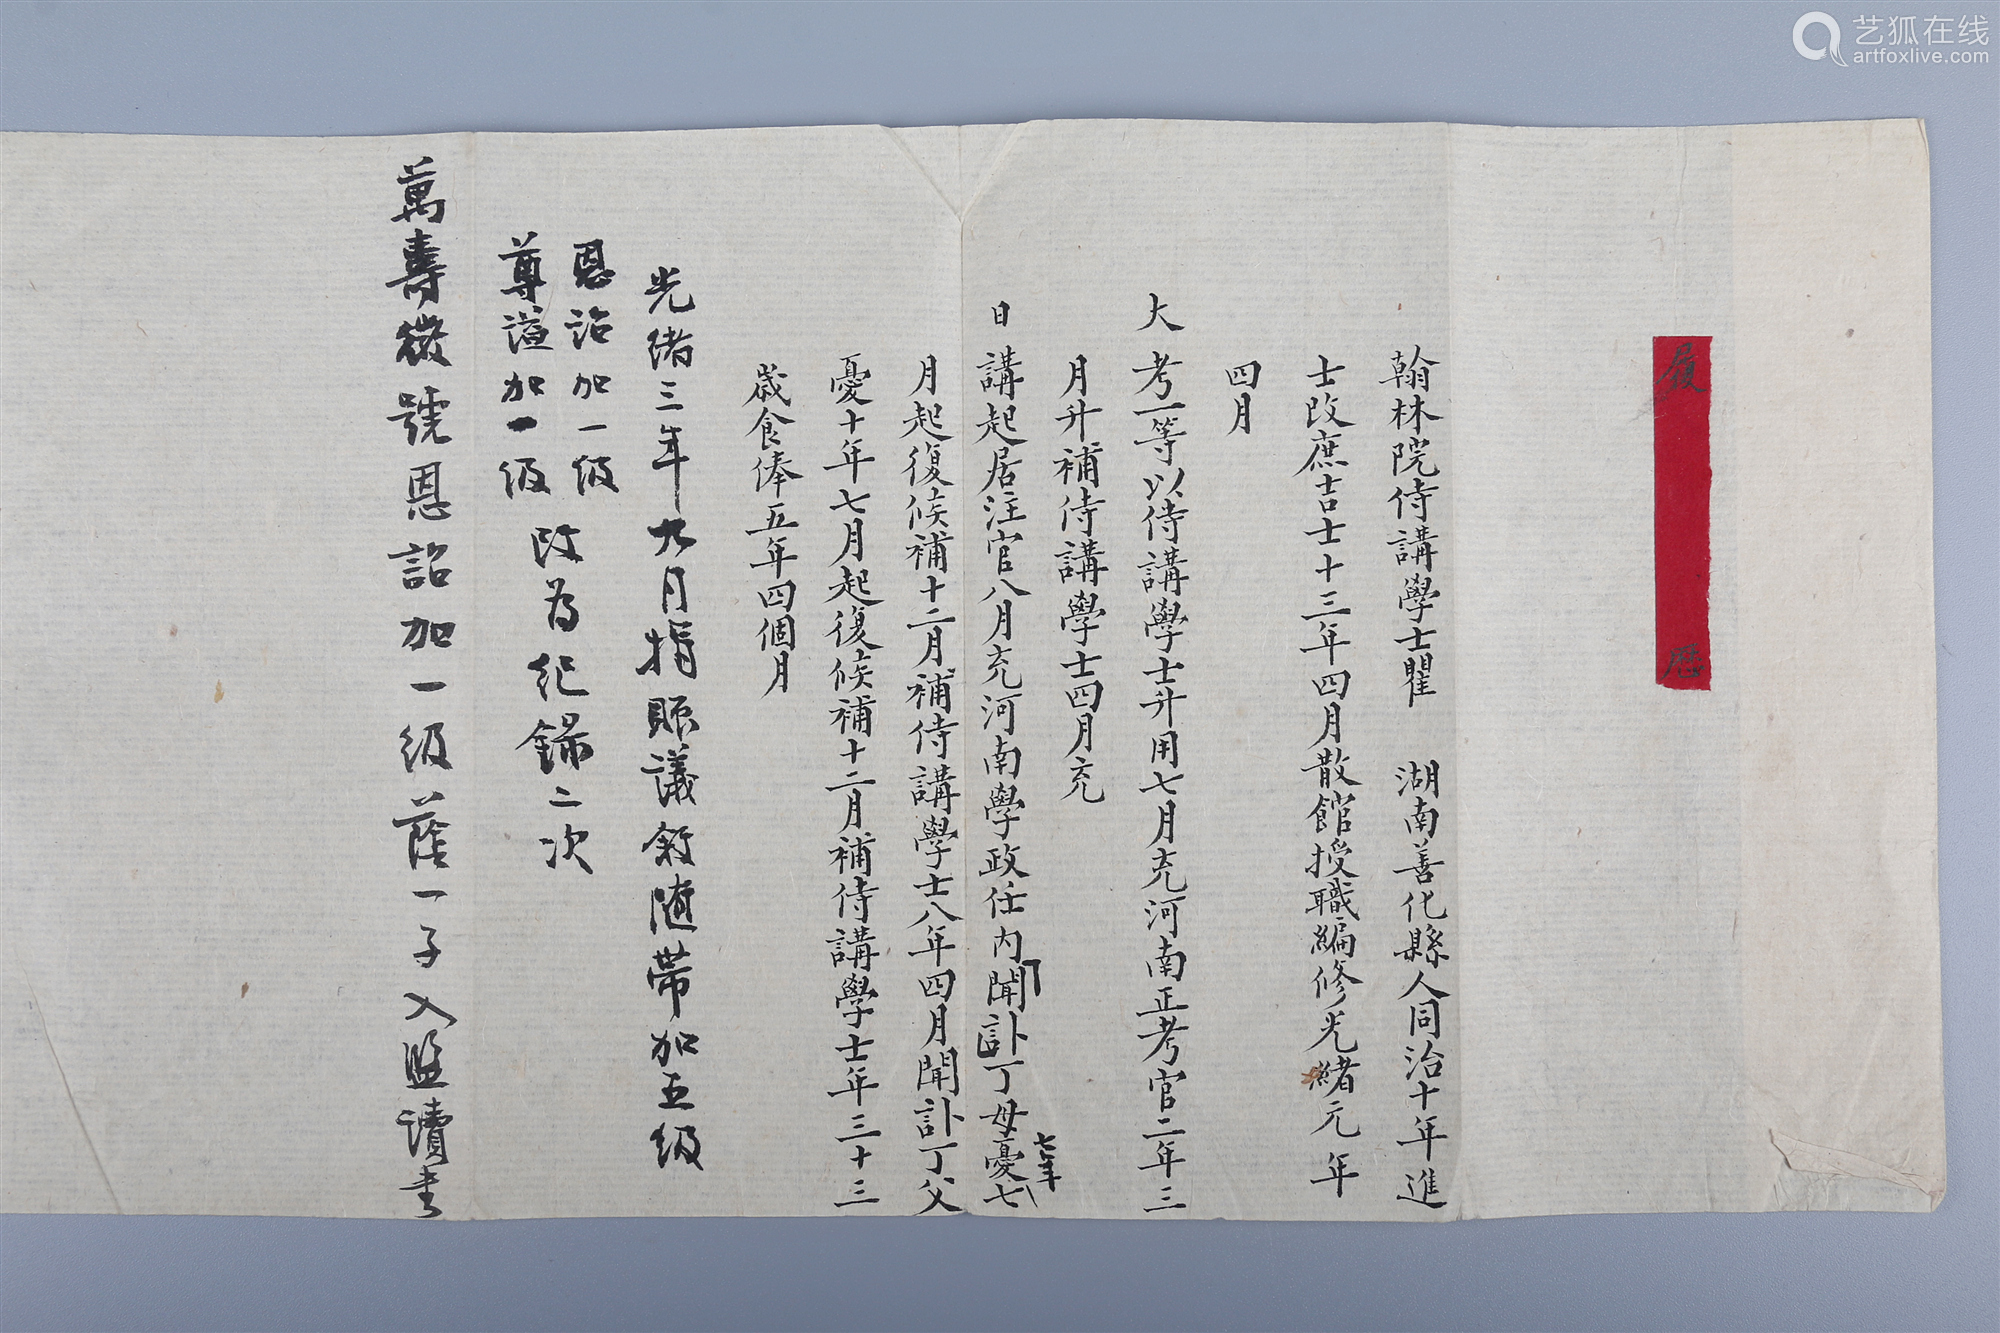 艺狐在线
artfoxlive.com
履歷
翰林院侍講學士瞿 湖南善化縣人同治十年進
士改庶吉士十三年四月散館授職編修光緒元年
四月
大考一等以侍講學士升用七月充河南正考官二年三
月升補侍講學士四月充
日講起居注官八月充河南學政任內聞訃丁母憂七
七年
月起復候補十二月補侍講學士八年四月聞訃丁父
憂十年七月起復候補十二月補侍講學士年三十三
歲食俸五年四個月
光緒三年九月捐賑議敘隨帶加五級
恩詔加一級
尊謚加一級
改為紀錄二次
萬壽徽號恩詔加一級蔭一子入監讀書